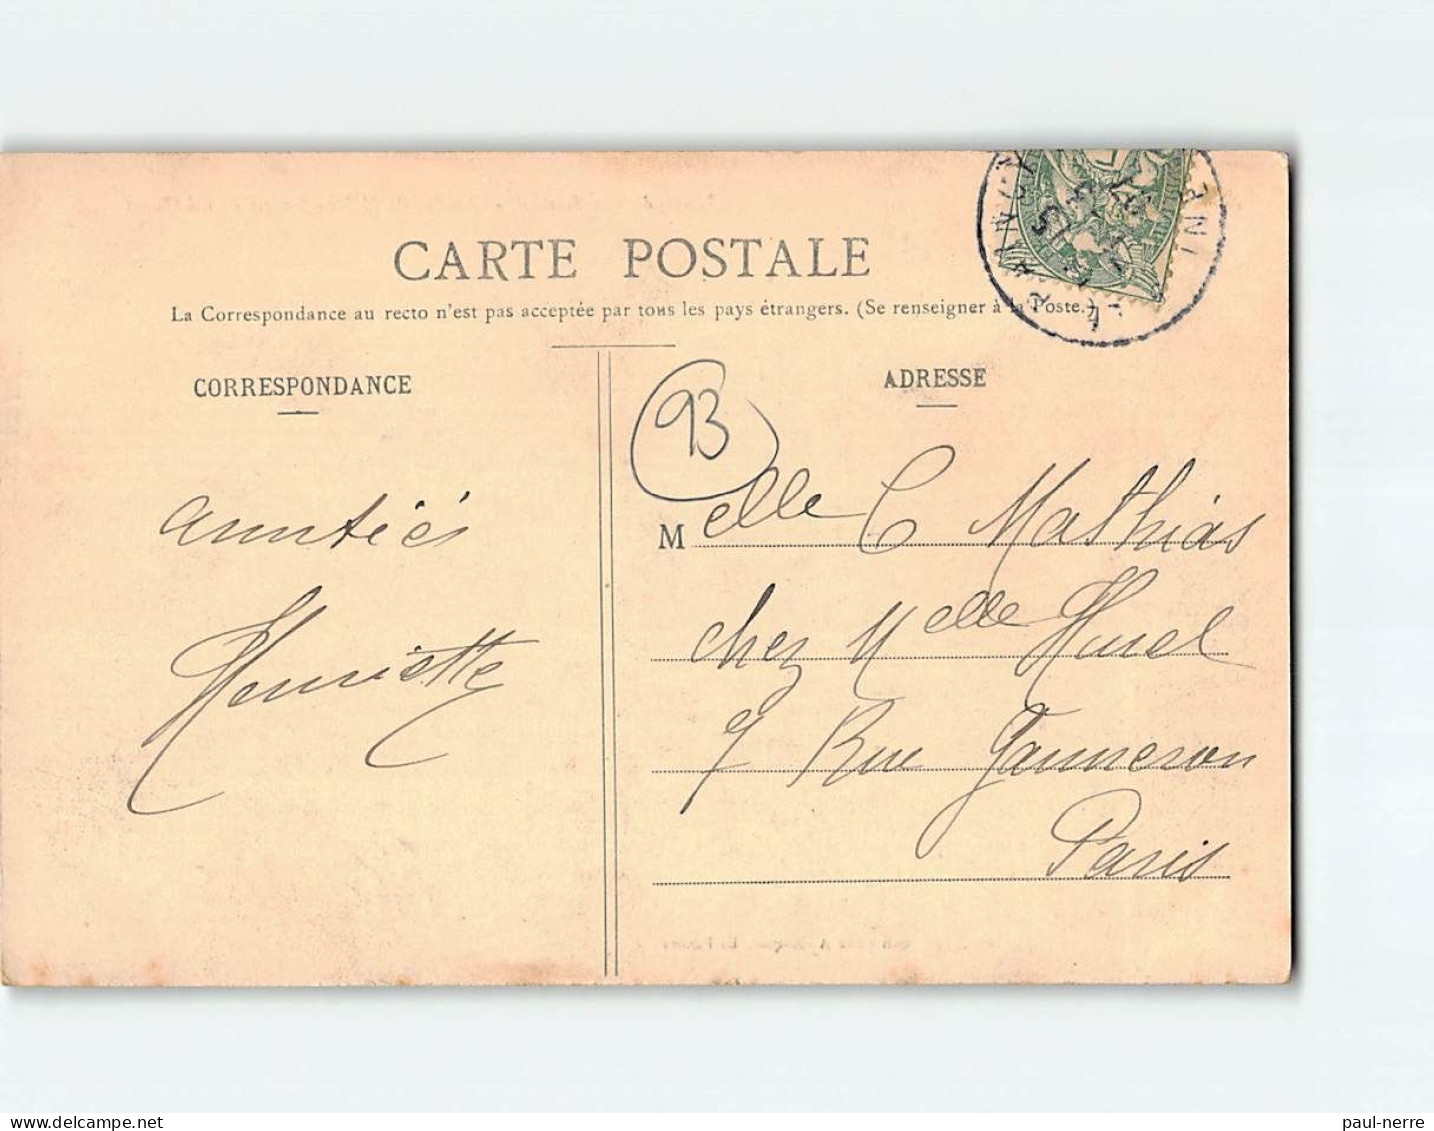 CARTE POSTALE
La Correspondance au recto n'est pas acceptée par tous les pays étrangers. (Se renseigner à la Poste.)
CORRESPONDANCE
ADRESSE
93
amitiés
Henriette
Melle C Mathias
chez Melle Hurel
7 Rue Ganneron
Paris
paul-nerre